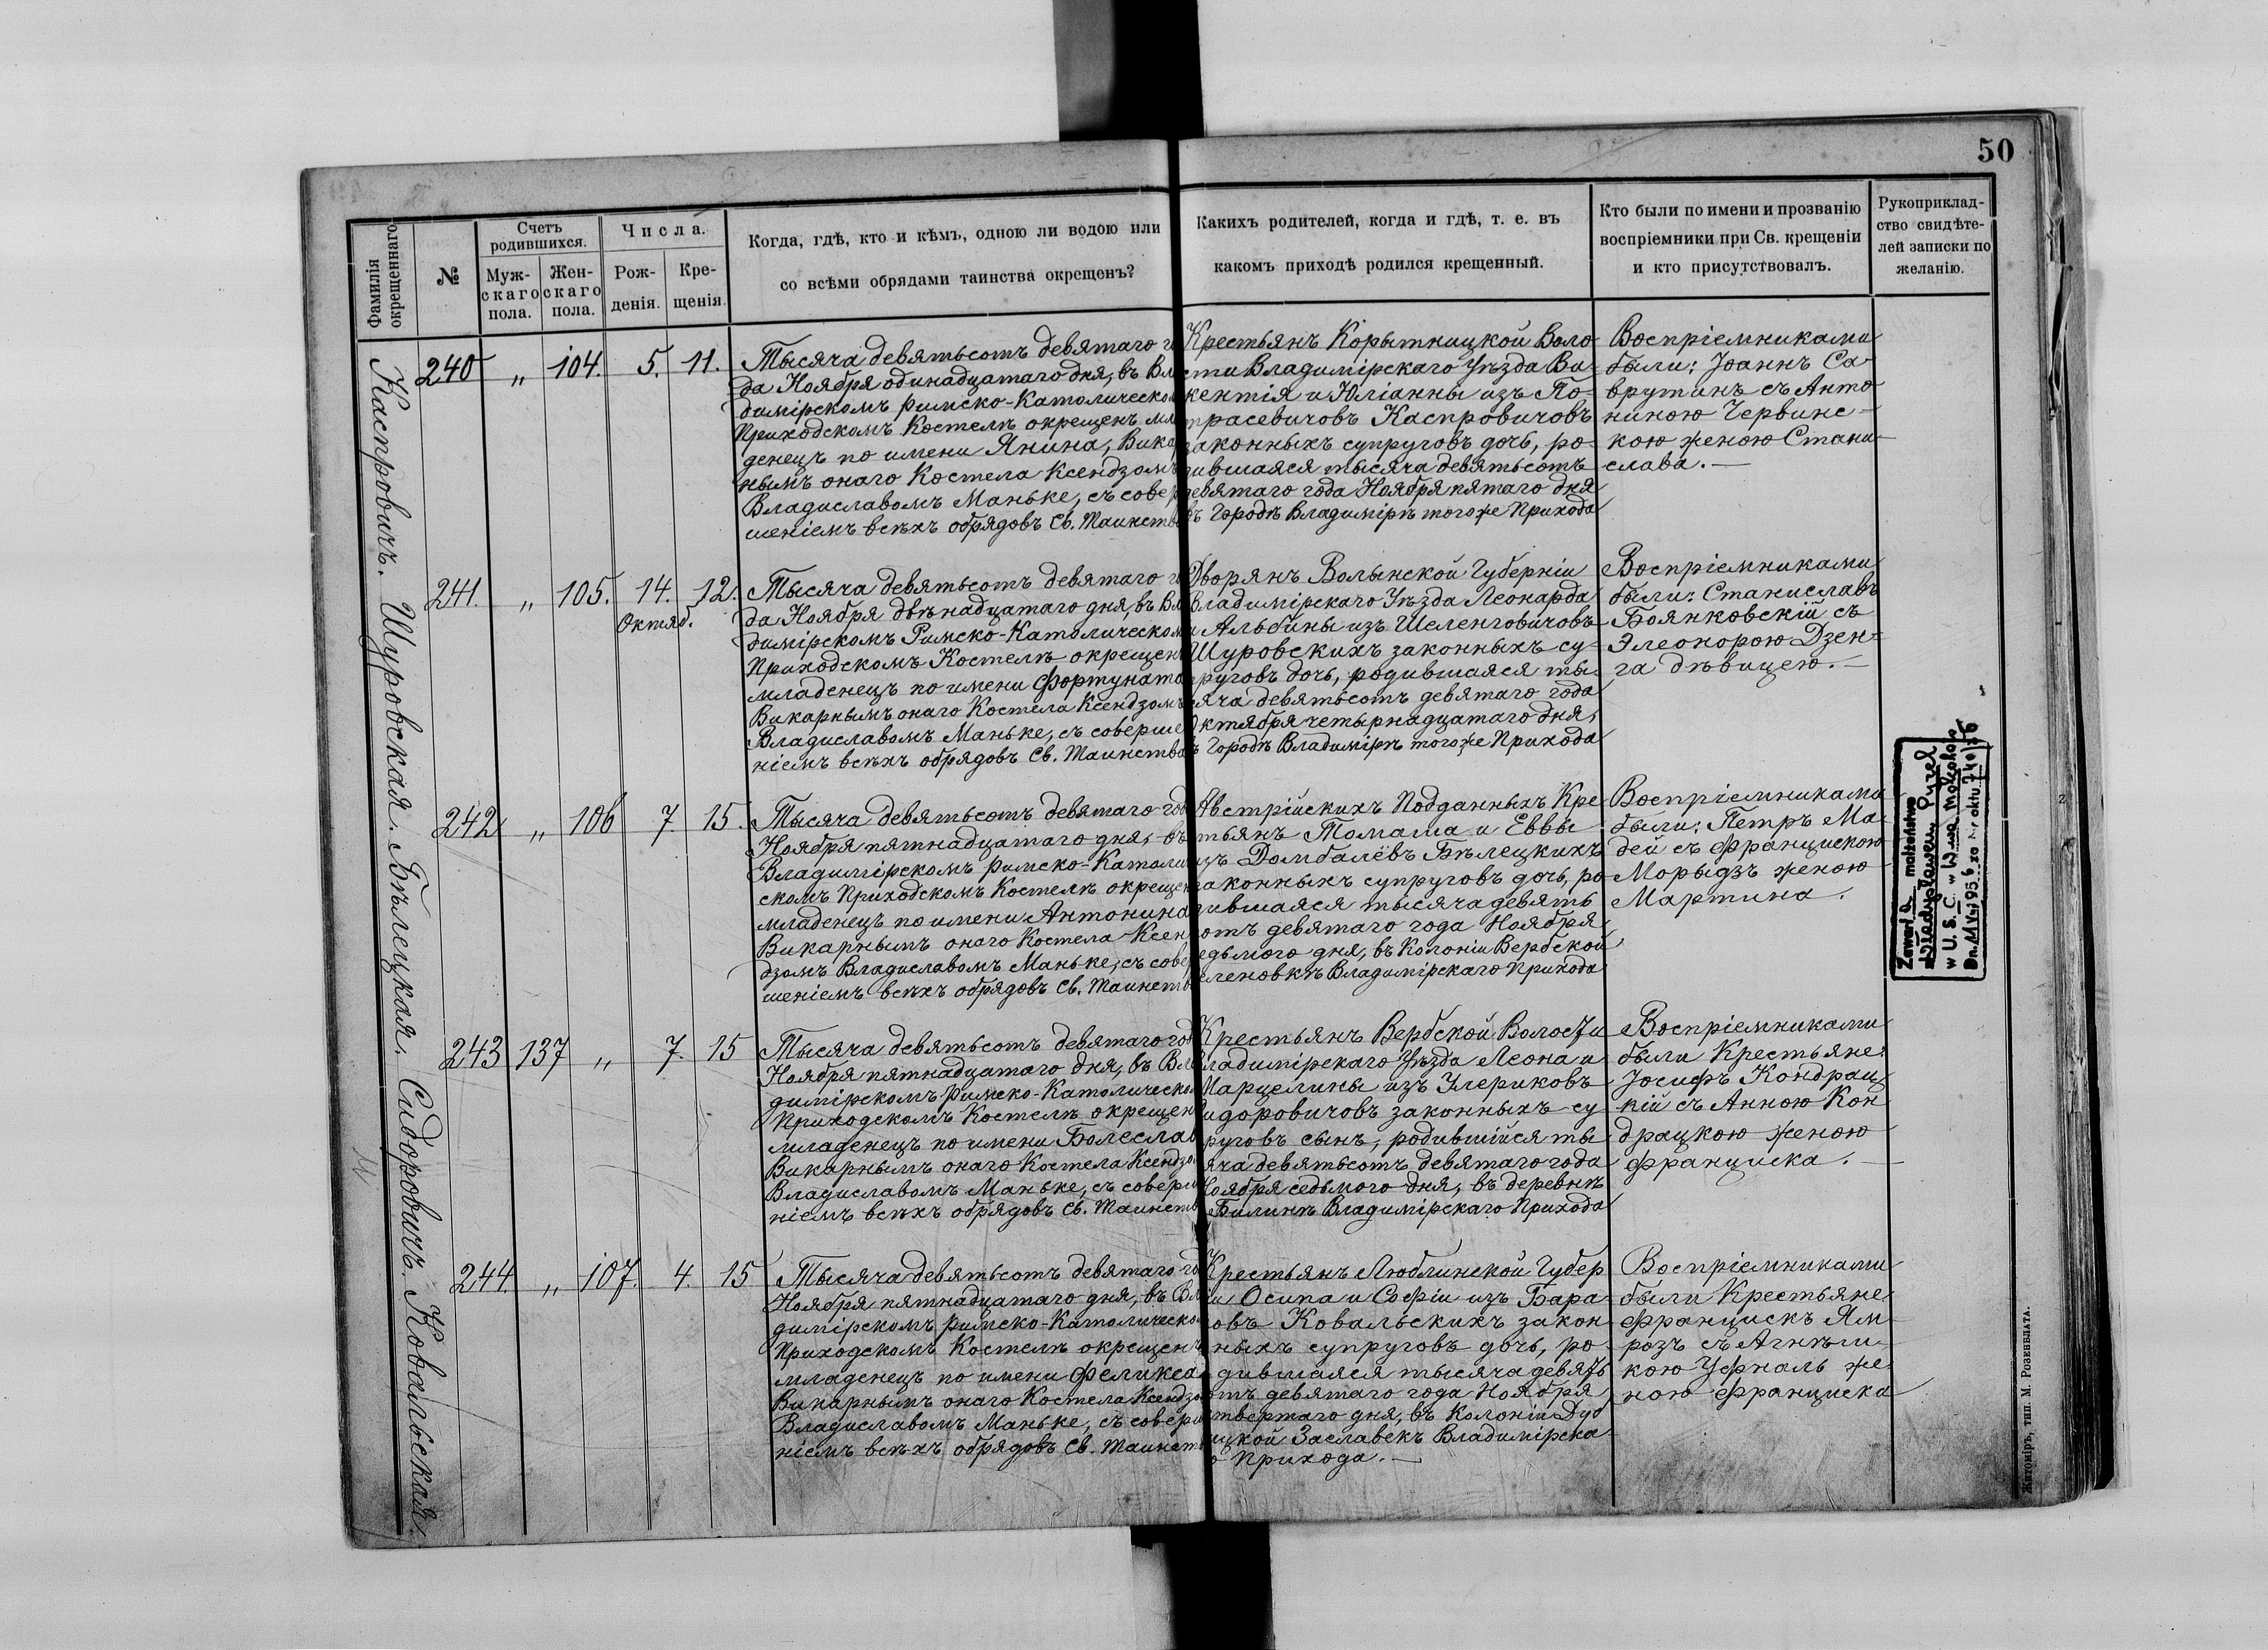 50
Фамилія
окрещеннаго
№
Счетъ
родившихся.
Муж-
скаго
пола.
Жен-
скаго
пола.
Числа.
Рож-
денія.
Кре-
щенія.
Когда, гдѣ, кто и кѣмъ, одною ли водою или
со всѣми обрядами таинства окрещенъ?
Какихъ родителей, когда и гдѣ, т. е. въ
какомъ приходѣ родился крещенный.
Кто были по имени и прозванію
воспріемники при Св. крещеніи
и кто присутствовалъ.
Рукоприклад-
ство свидѣте-
лей записки по
желанію.
Каспровичъ.
240 „ 104. 5. 11.
Тысяча девятьсотъ девятаго г
да Ноября одинадцатаго дня, въ Вла
димірскомъ Римско-Католическом
Приходскомъ Костелѣ окрещенъ мла
денецъ по имени Янина, Вика
нымъ онаго Костела Ксендзомъ
Владиславомъ Маньке, съ совер
шеніемъ всѣхъ обрядовъ Св. Таинств
Крестьянъ Корытницкой Воло
сти Владимірскаго Уѣзда Ви-
кентія и Юліанны изъ По-
трасевичовъ Каспровичовъ
законныхъ супруговъ дочь, ро-
дившаяся тысяча девятьсотъ
девятаго года Ноября пятаго дня
въ Городѣ Владимірѣ тогоже Прихода
Воспріемниками
были: Іоаннъ Са-
врутинъ съ Анто-
ниною Червинс-
кою женою Стани-
слава.—
Шуровская.
241. „ 105. 14. 12.
Октяб.
Тысяча девятьсотъ девятаго го
да Ноября двѣнадцатаго дня, въ Вл
димірскомъ Римско-Католическом
Приходскомъ Костелѣ окрещен
младенецъ по имени Фортуната
Викарнымъ онаго Костела Ксендзомъ
Владиславомъ Маньке, съ соверше
ніемъ всѣхъ обрядовъ Св. Таинства
Дворянъ Волынской Губерніи
Владимірскаго Уѣзда Леонарда
и Альбины изъ Шеленговичовъ
Шуровскихъ законныхъ су-
пруговъ дочь, родившаяся ты-
сяча девятьсотъ девятаго года
Октября четырнадцатаго дня,
въ Городѣ Владимірѣ тогоже Прихода
Воспріемниками
были: Станиславъ
Боянковскій съ
Элеонорою Дзен-
га дѣвицею.—
Бѣлецкая.
242 „ 106 7. 15.
Тысяча девятьсотъ девятаго год
Ноября пятнадцатаго дня, въ
Владимірскомъ Римско-Католи
скомъ Приходскомъ Костелѣ окрещен
младенецъ по имени Антонина
Викарнымъ онаго Костела Ксен
дзомъ Владиславомъ Маньке, съ сове
шеніемъ всѣхъ обрядовъ Св. Таинств
Австрійскихъ Подданныхъ Кре
стьянъ Томаша и Еввы
изъ Домбалёвъ Бѣлецкихъ
законныхъ супруговъ дочь, ро
дившаяся тысяча девять
сотъ девятаго года Ноября
седьмого дня, въ Колоніи Вербской
еленовкѣ Владимірскаго Прихода
Воспріемниками
были: Петръ Ма-
дей съ Францискою
Морыдзъ женою
Мартина.
Zawarła małżeństwo
z Władysławem Pyzel
w U. S. C. w W-wa Mokotów
Сидоровичъ.
243 137 „ 7. 15
Тысяча девятьсотъ девятаго год
Ноября пятнадцатаго дня, въ Вла
димірскомъ Римско-Католическом
Приходскомъ Костелѣ окрещен
младенецъ по имени Болеслав
Викарнымъ онаго Костела Ксендзо
Владиславомъ Маньке, съ соверш
ніемъ всѣхъ обрядовъ Св. Таинств
Крестьянъ Вербской Волости
Владимірскаго Уѣзда Леона и
Марцелины изъ Улериковъ
идоровичовъ законныхъ су
руговъ сынъ, родившійся ты
яча девятьсотъ девятаго года
Ноября седьмого дня, въ деревнѣ
Билинѣ Владимірскаго Прихода
Воспріемниками
были Крестьяне:
Іосифъ Кондрац
кій съ Анною Кон
драцкою женою
Франциска.—
Ковальская.
244. „ 107. 4. 15
Тысяча девятьсотъ девятаго го
Ноября пятнадцатаго дня, въ Вл
димірскомъ Римско-Католическо
Приходскомъ Костелѣ окрещенъ
младенецъ по имени Феликса
Викарнымъ онаго Костела Ксендзо
Владиславомъ Маньке, съ соверш
ніемъ всѣхъ обрядовъ Св. Таинст
Крестьянъ Люблинской Губер
іи Осипа и Софіи изъ Бара
овъ Ковальскихъ закон
ныхъ супруговъ дочь, ро-
дившаяся тысяча девять
отъ девятаго года Ноября
твертаго дня, въ Колоніи Дуб
ицкой Заславекъ Владимірска
о Прихода.—
Воспріемниками
были Крестьяне
Францискъ Ям-
розъ съ Агнѣш-
кою Уфналь же-
ною Франциска
Житоміръ, тип. М. Розенблата.